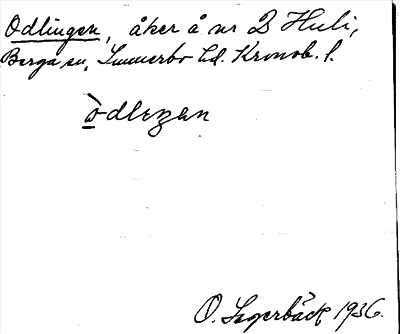 Odlingen, åker å nr 2 Huli,
Berga sn, Sunnerbo hd. Kronob. l.
òdlezen
O. Segerbäck 1936.